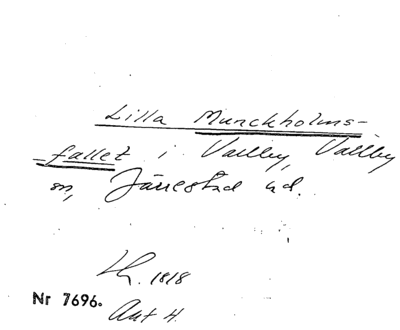 Lilla Munckholms-
fallet i Vallby, Vallby
sn, Järrestad hd.
Lh. 1818
Nr 7696.
Akt 4.